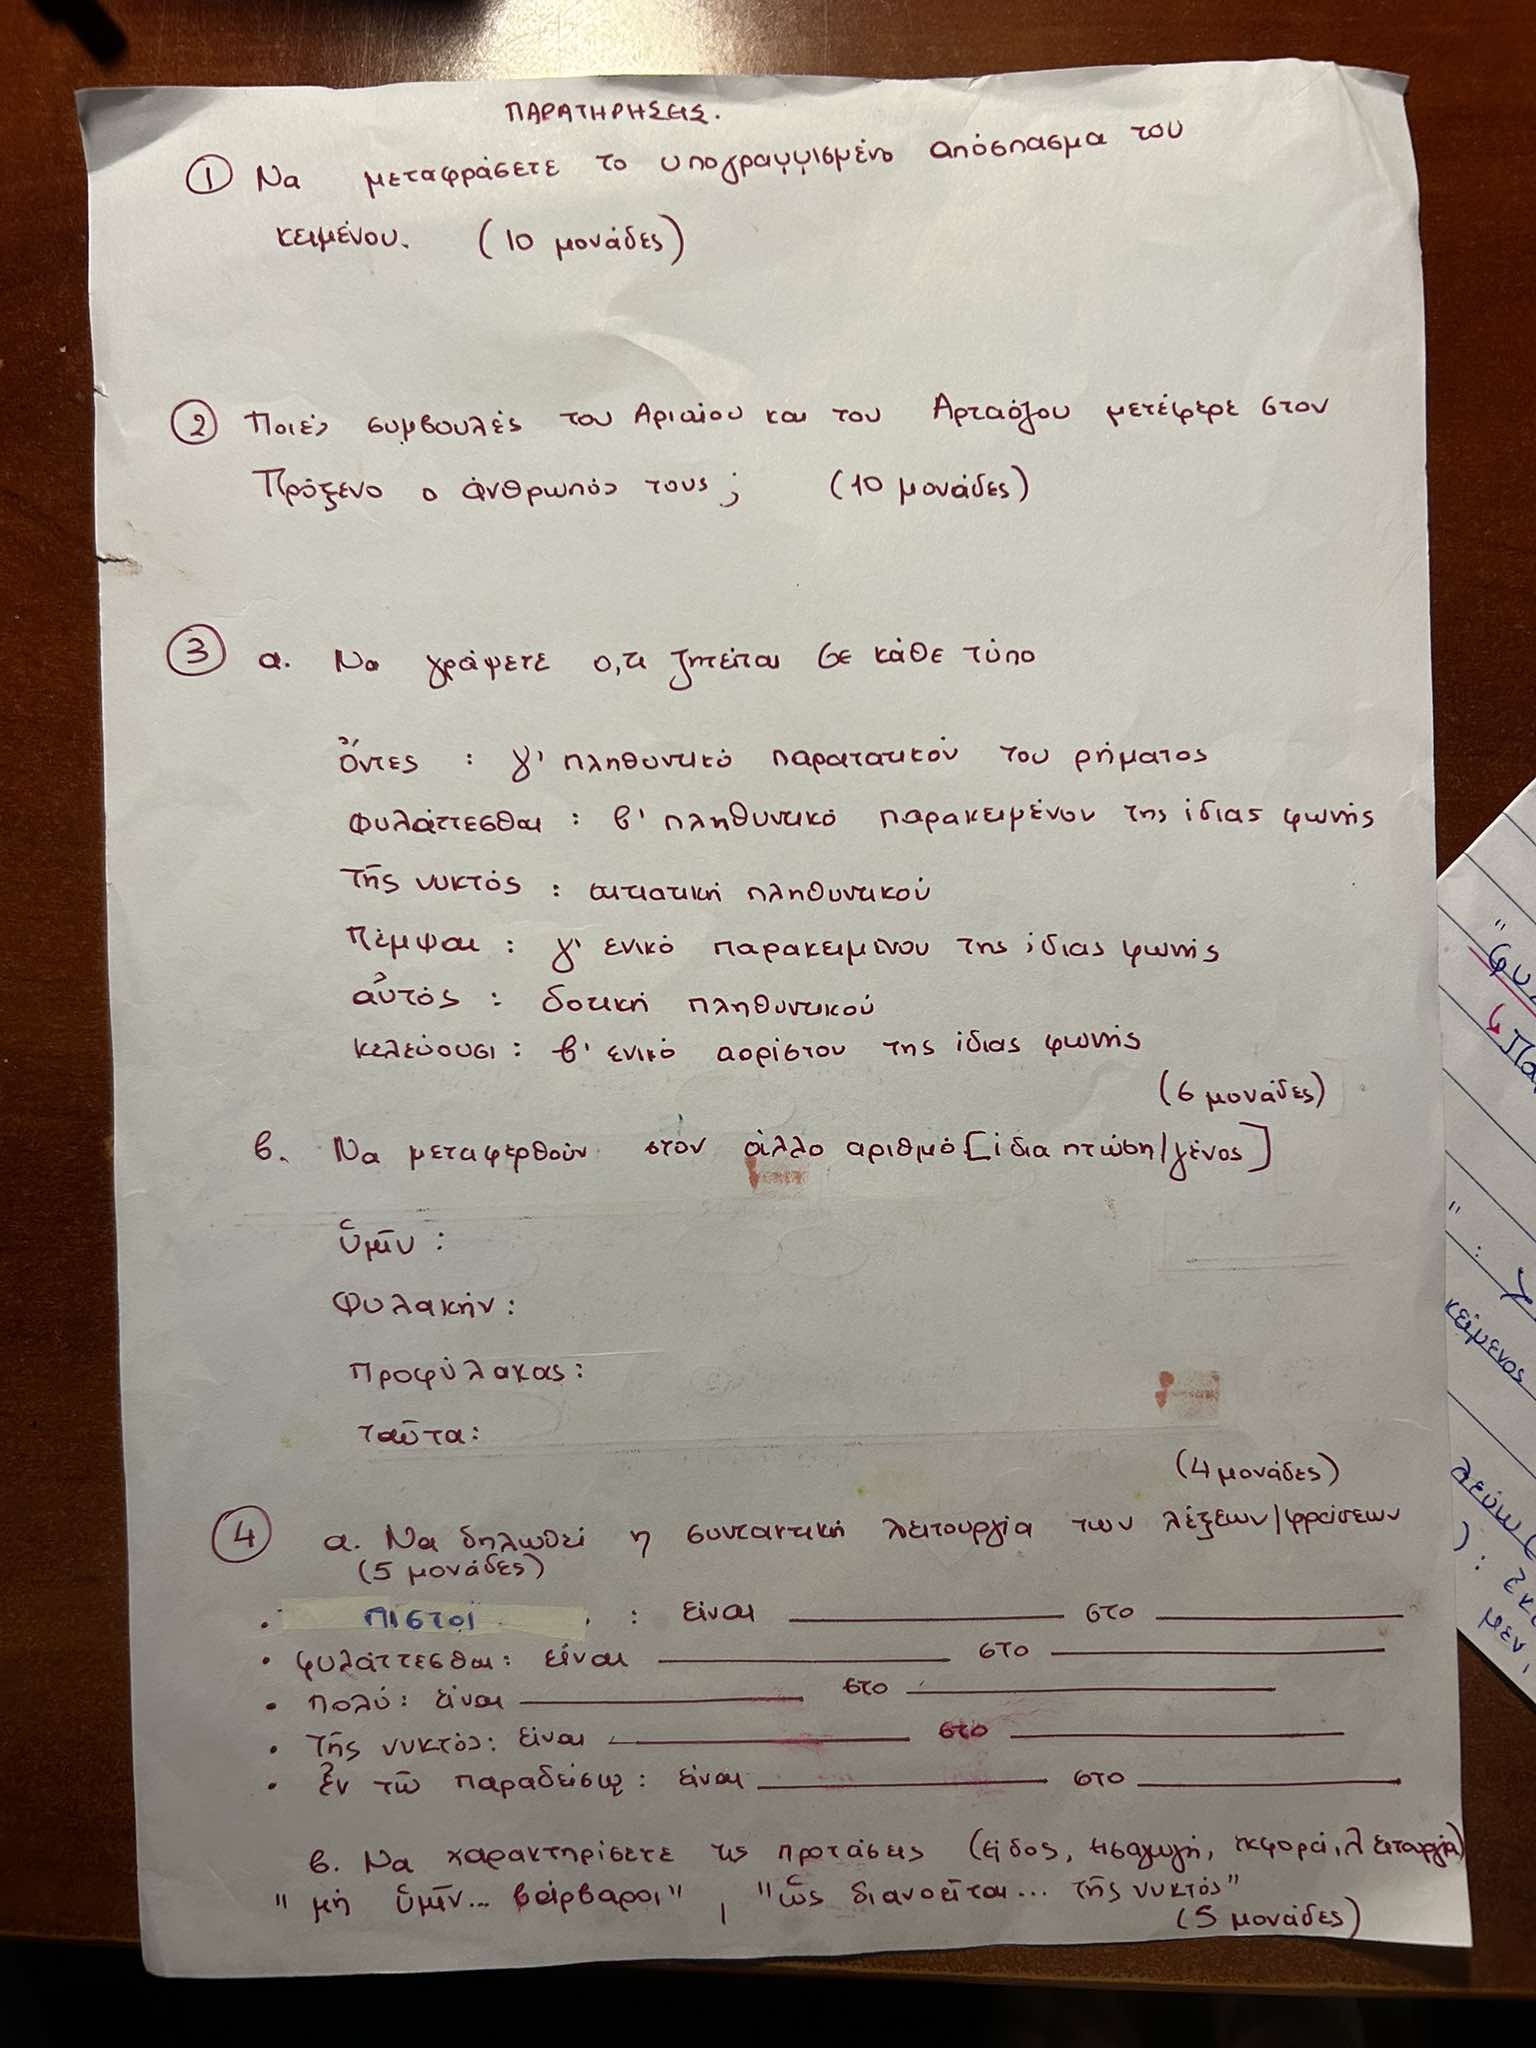 ΠΑΡΑΤΗΡΗΣΕΙΣ.
① Να μεταφράσετε το υπογραμμισμένο απόσπασμα του
κειμένου. (10 μονάδες)
② Ποιές συμβουλές του Αριαίου και του Αρταόζου μετέφερε στον
Πρόξενο ο άνθρωπός τους; (10 μονάδες)
③ α. Να γράψετε ο,τι ζητείται σε κάθε τύπο
ὄντες : γ' πληθυντικό παρατατικού του ρήματος
φυλάττεσθαι : β' πληθυντικό παρακειμένου της ίδιας φωνής
τῆς νυκτός : αιτιατική πληθυντικού
πέμψαι : γ' ενικό παρακειμένου της ίδιας φωνής
αὐτός : δοτική πληθυντικού
κελεύουσι : β' ενικό αορίστου της ίδιας φωνής
(6 μονάδες)
β. Να μεταφερθούν στον άλλο αριθμό [ίδια πτώση/γένος]
ὑμῖν :
Φυλακήν :
Προφύλακας :
ταῦτα :
(4 μονάδες)
④ α. Να δηλωθεί η συντακτική λειτουργία των λέξεων/φράσεων
(5 μονάδες)
• ΠΙΣΤΟΙ : είναι ______ στο ______
• φυλάττεσθαι : είναι ______ στο ______
• πολύ : είναι ______ στο ______
• τῆς νυκτός : είναι ______ στο ______
• ἐν τῶ παραδείσῳ : είναι ______ στο ______
β. Να χαρακτηρίσετε τις προτάσεις (είδος, εισαγωγή, εκφορά, λειτουργία)
"μή ὑμῖν... βάρβαροι" , "ὡς διανοεῖται... τῆς νυκτός"
(5 μονάδες)